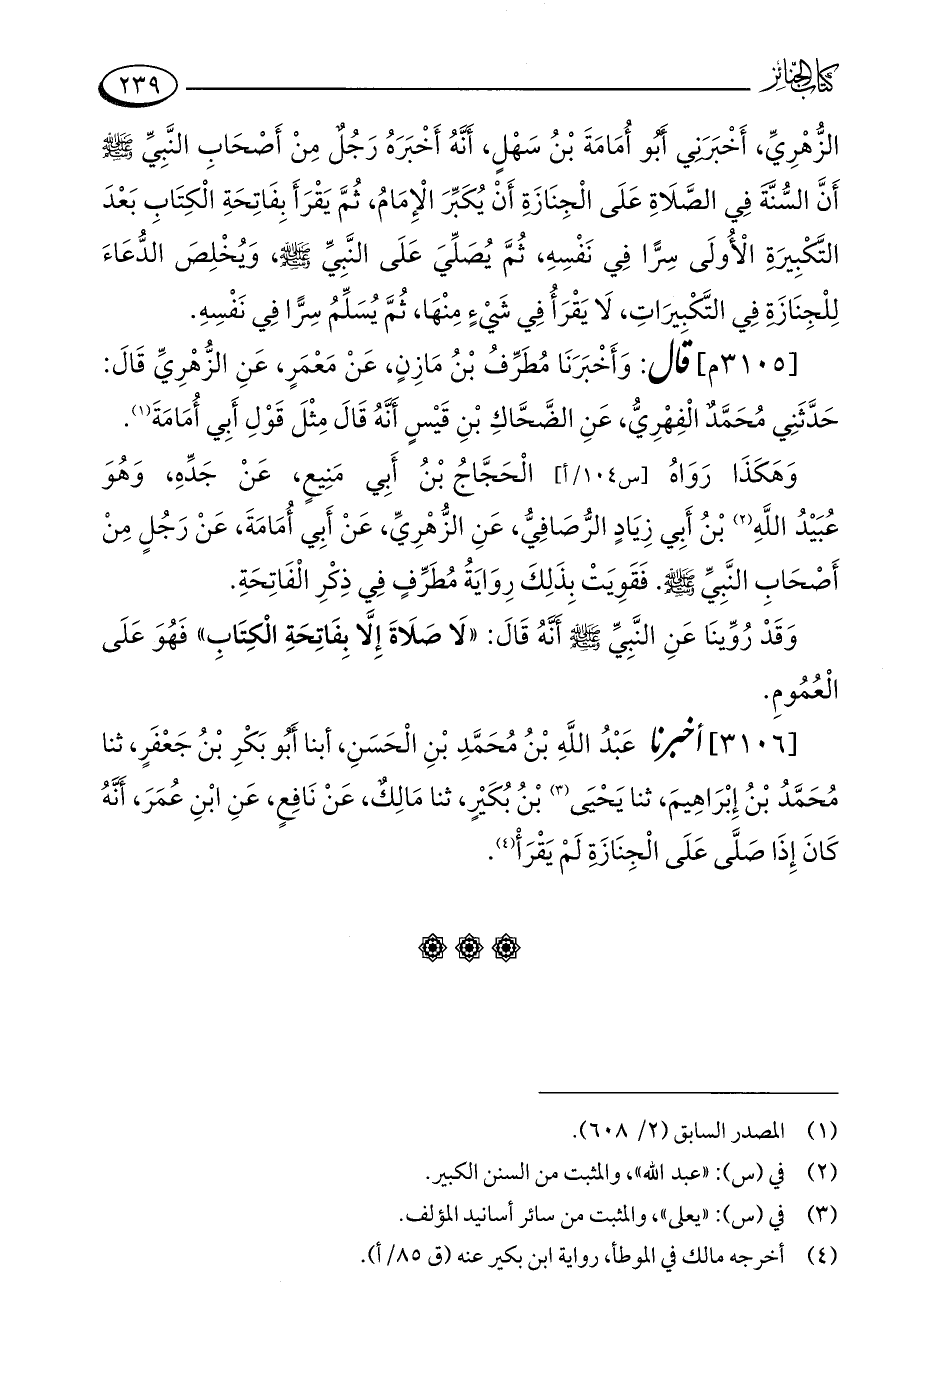 كتاب الجنائز
٢٣٩
الزُّهْرِيِّ، أَخْبَرَنِي أَبُو أُمَامَةَ بْنُ سَهْلٍ، أَنَّهُ أَخْبَرَهُ رَجُلٌ مِنْ أَصْحَابِ النَّبِيِّ ﷺ
أَنَّ السُّنَّةَ فِي الصَّلَاةِ عَلَى الْجِنَازَةِ أَنْ يُكَبِّرَ الْإِمَامُ، ثُمَّ يَقْرَأَ بِفَاتِحَةِ الْكِتَابِ بَعْدَ
التَّكْبِيرَةِ الْأُولَى سِرًّا فِي نَفْسِهِ، ثُمَّ يُصَلِّيَ عَلَى النَّبِيِّ ﷺ، وَيُخْلِصَ الدُّعَاءَ
لِلْجِنَازَةِ فِي التَّكْبِيرَاتِ، لَا يَقْرَأُ فِي شَيْءٍ مِنْهَا، ثُمَّ يُسَلِّمُ سِرًّا فِي نَفْسِهِ.
[٣١٠٥م] قال: وَأَخْبَرَنَا مُطَرِّفُ بْنُ مَازِنٍ، عَنْ مَعْمَرٍ، عَنِ الزُّهْرِيِّ قَالَ:
حَدَّثَنِي مُحَمَّدٌ الْفِهْرِيُّ، عَنِ الضَّحَّاكِ بْنِ قَيْسٍ أَنَّهُ قَالَ مِثْلَ قَوْلِ أَبِي أُمَامَةَ(١).
وَهَكَذَا رَوَاهُ [س١٠٤/أ] الْحَجَّاجُ بْنُ أَبِي مَنِيعٍ، عَنْ جَدِّهِ، وَهُوَ
عُبَيْدُ اللَّهِ(٢) بْنُ أَبِي زِيَادٍ الرُّصَافِيُّ، عَنِ الزُّهْرِيِّ، عَنْ أَبِي أُمَامَةَ، عَنْ رَجُلٍ مِنْ
أَصْحَابِ النَّبِيِّ ﷺ. فَقَوِيَتْ بِذَلِكَ رِوَايَةُ مُطَرِّفٍ فِي ذِكْرِ الْفَاتِحَةِ.
وَقَدْ رُوِّينَا عَنِ النَّبِيِّ ﷺ أَنَّهُ قَالَ: «لَا صَلَاةَ إِلَّا بِفَاتِحَةِ الْكِتَابِ» فَهُوَ عَلَى
الْعُمُومِ.
[٣١٠٦] أخبرنا عَبْدُ اللَّهِ بْنُ مُحَمَّدِ بْنِ الْحَسَنِ، أبنا أَبُو بَكْرِ بْنُ جَعْفَرٍ، ثنا
مُحَمَّدُ بْنُ إِبْرَاهِيمَ، ثنا يَحْيَى(٣) بْنُ بُكَيْرٍ، ثنا مَالِكٌ، عَنْ نَافِعٍ، عَنِ ابْنِ عُمَرَ، أَنَّهُ
كَانَ إِذَا صَلَّى عَلَى الْجِنَازَةِ لَمْ يَقْرَأْ(٤).
(١) المصدر السابق (٢/ ٦٠٨).
(٢) في (س): «عبد الله»، والمثبت من السنن الكبير.
(٣) في (س): «يعلى»، والمثبت من سائر أسانيد المؤلف.
(٤) أخرجه مالك في الموطأ، رواية ابن بكير عنه (ق ٨٥/ أ).